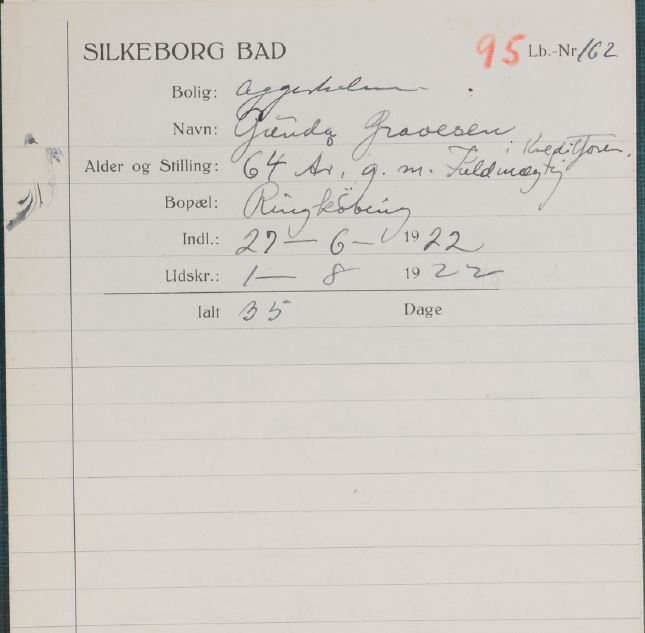 SILKEBORG BAD 95 Lb.-Nr 162
Bolig: Aggersholm
Navn: Gunda Gravesen
Alder og Stilling: 64 Ar, g. m. Fuldmægtig i Kreditforen.
Bopæl: Ringköbing
Indl.: 27 — 6 — 1922
Udskr.: 1 — 8 1922
Ialt 35 Dage